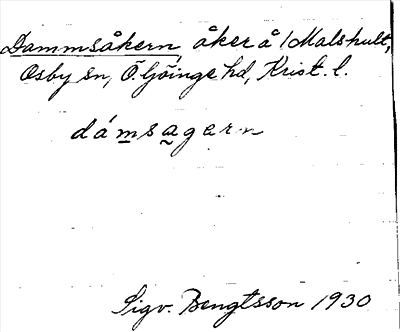 Dammsåkern, åker å /Malshult,
Osby sn, Ö. Göinge hd, Krist. l.
dámsagern
Sigv. Bengtsson 1930